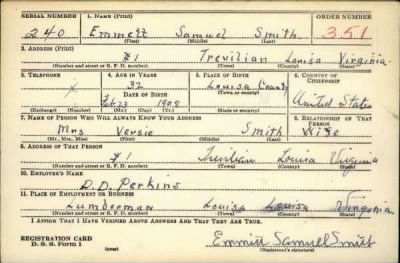 SERIAL NUMBER 1. NAME (Print) ORDER NUMBER
240 Emmett Samuel Smith 351
(First) (Middle) (Last)
2. ADDRESS (Print)
#1 Trevilian Louisa Virginia
(Number and street or R. F. D. number) (Town) (County) (State)
3. TELEPHONE 4. AGE IN YEARS 5. PLACE OF BIRTH 6. COUNTRY OF CITIZENSHIP
x 32 Louisa County
DATE OF BIRTH
Feb 23 1908 United States
(Exchange) (Number) (Mo.) (Day) (Yr.) (State or country)
7. NAME OF PERSON WHO WILL ALWAYS KNOW YOUR ADDRESS 8. RELATIONSHIP OF THAT PERSON
Mrs Versie Smith Wife
(Mr., Mrs., Miss) (First) (Middle) (Last)
9. ADDRESS OF THAT PERSON
#1 Trevilian Louisa Virginia
(Number and street or R. F. D. number) (Town) (County) (State)
10. EMPLOYER'S NAME
D. D. Perkins
11. PLACE OF EMPLOYMENT OR BUSINESS
Lumberman Louisa Louisa Virginia
(Number and street or R. F. D. number) (Town) (County) (State)
I AFFIRM THAT I HAVE VERIFIED ABOVE ANSWERS AND THAT THEY ARE TRUE.
REGISTRATION CARD
D. S. S. Form 1 (over) Emmitt Samuel Smitt
(Registrant's signature)